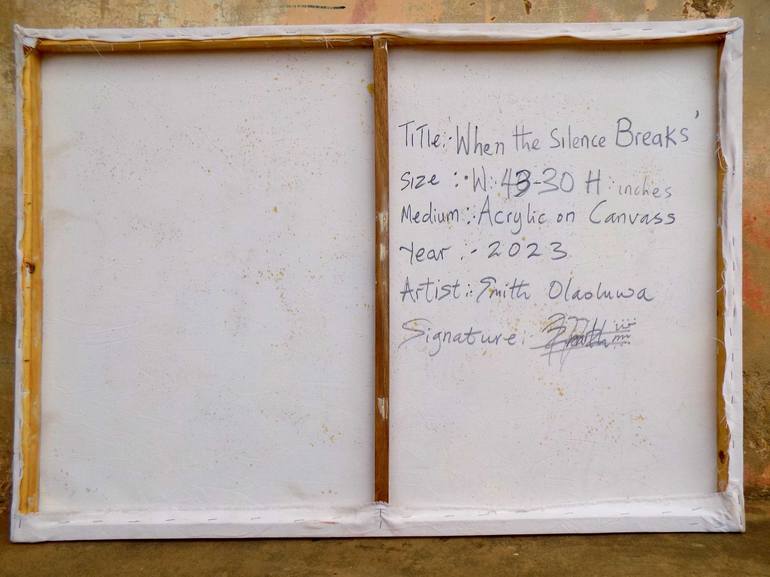 Title:- 'When the Silence Breaks'
Size :- W: 43-30 H : inches
Medium:- Acrylic on Canvass
Year :- 2023
Artist:- Smith Olaoluwa
Signature: